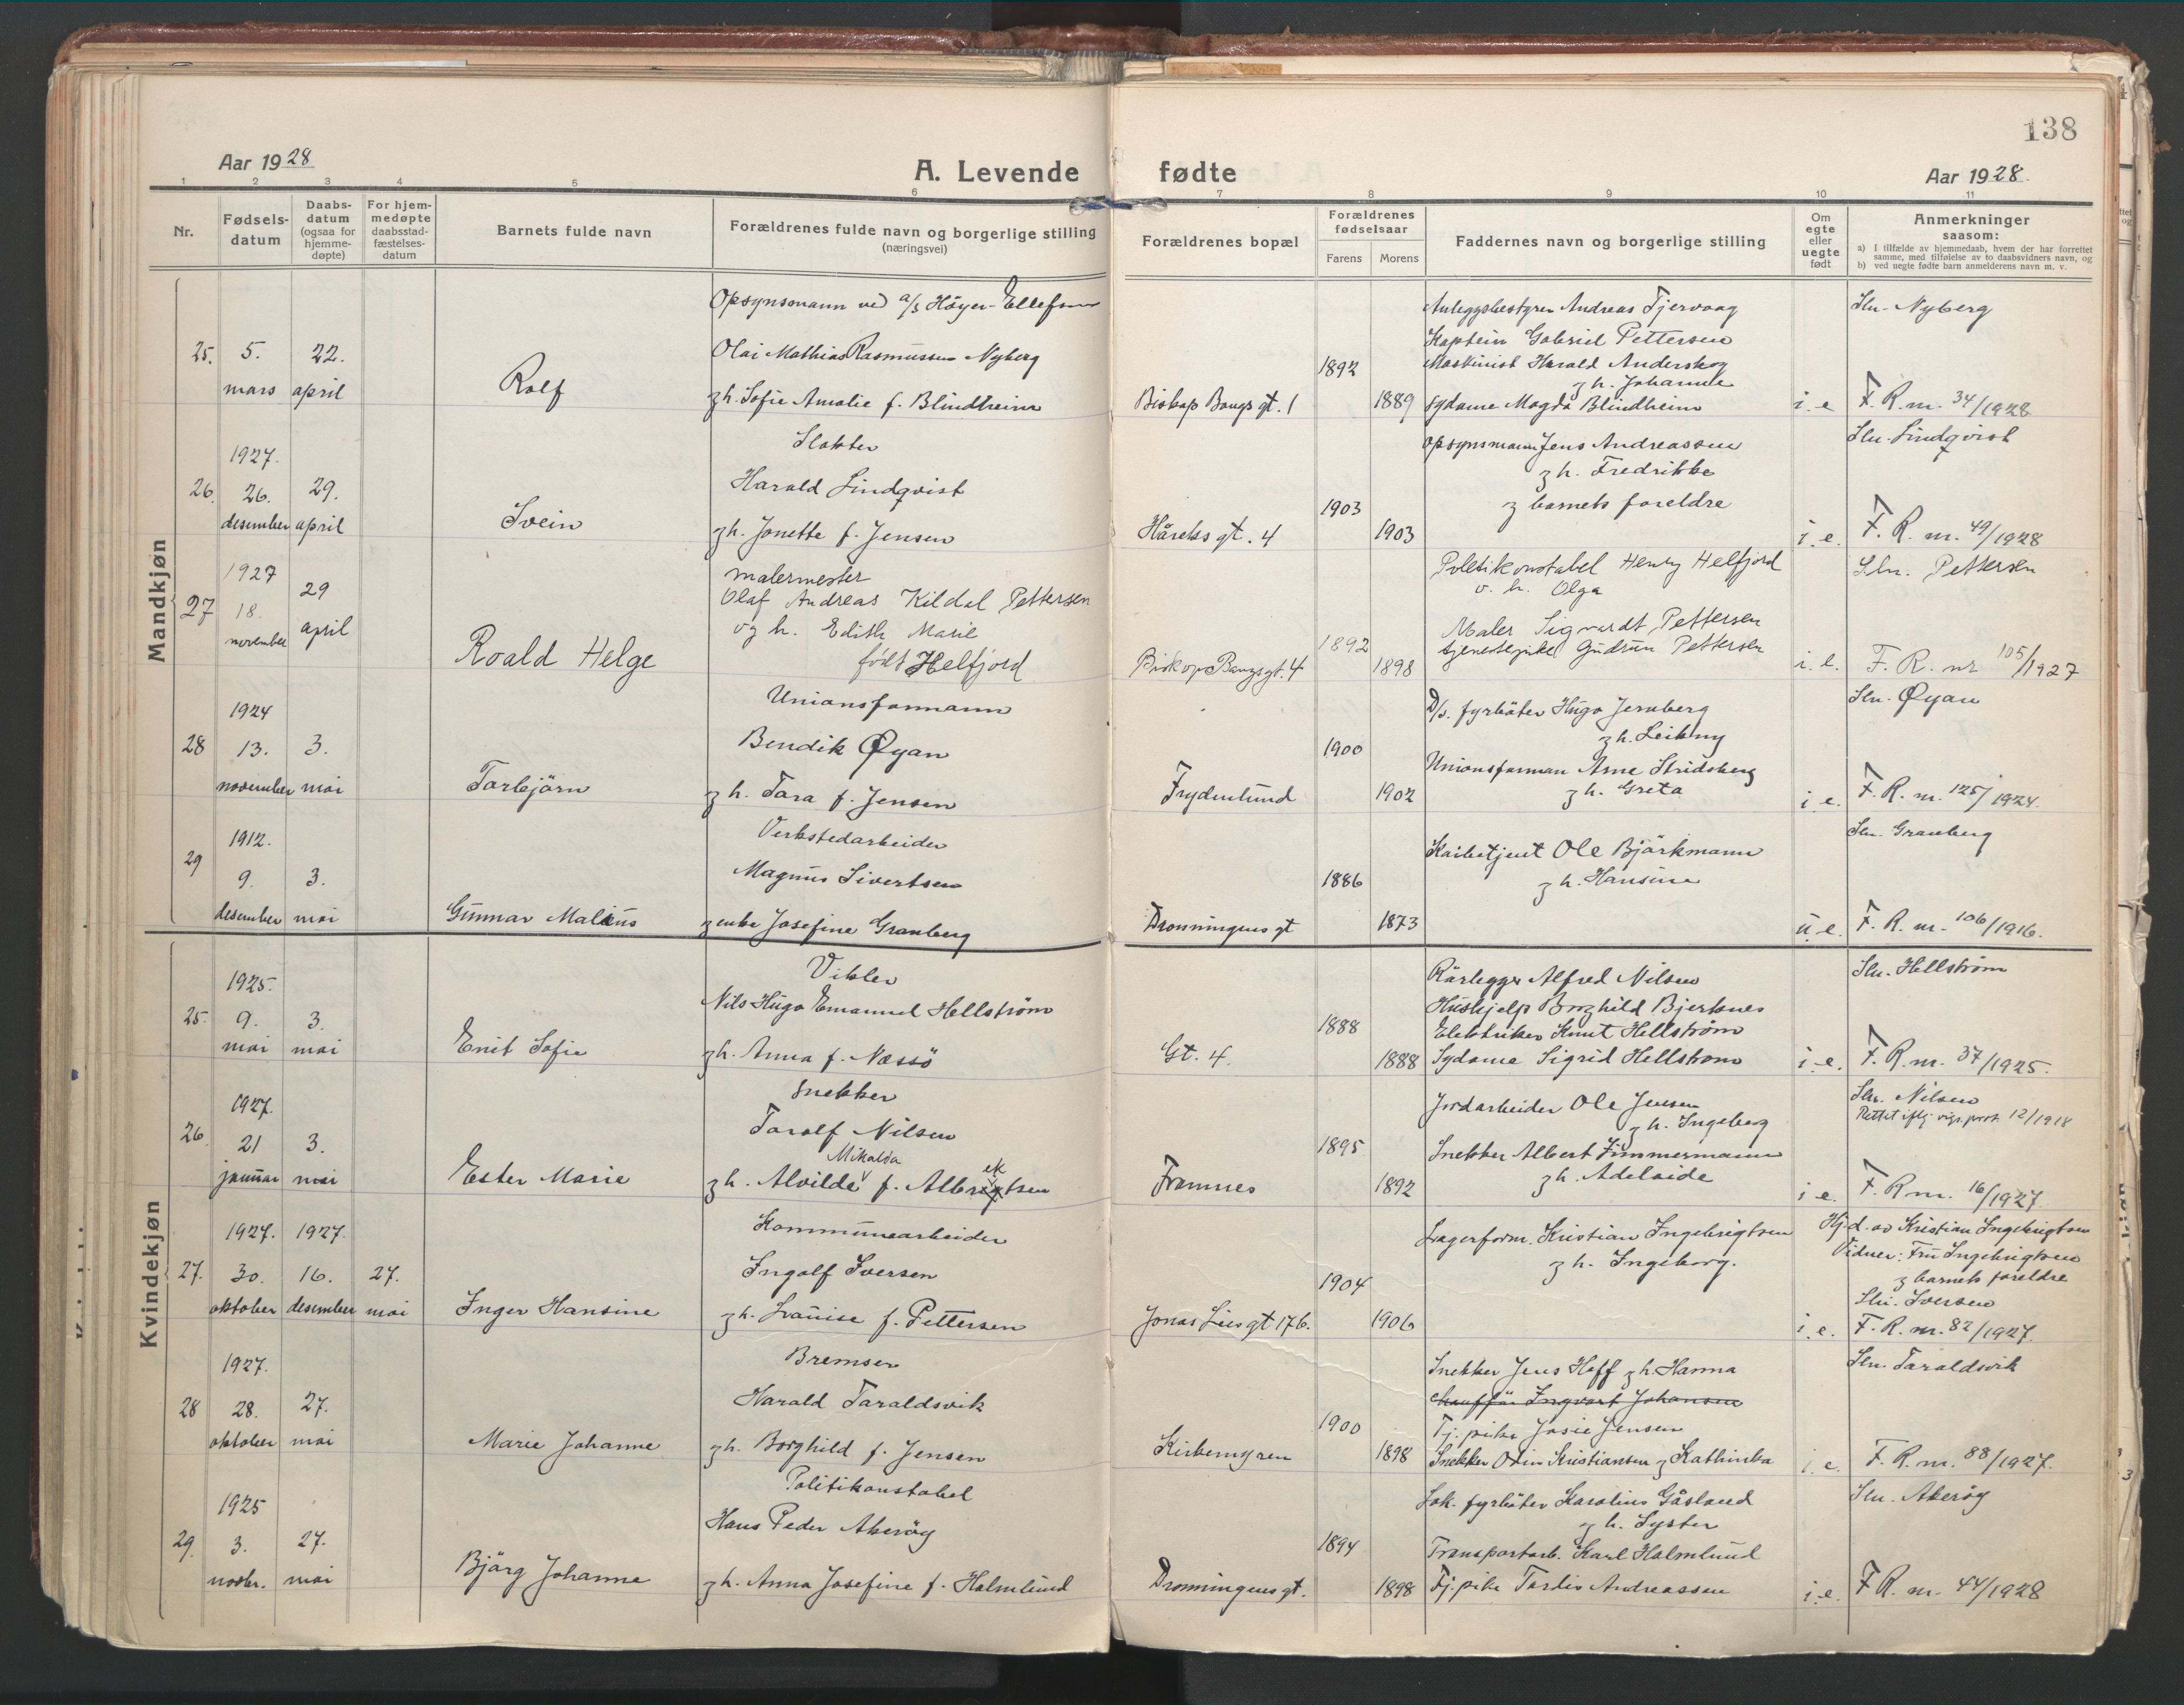 138
Aar 1928
A. Levende fødte
Aar 1928.
1 2 3 4 5 6 7 8 9 10 11
Nr.
Fødsels-
datum
Daabs-
datum
(ogsaa for
hjemme-
døpte)
For hjem-
medøpte
daabsstad-
fæstelses-
datum
Barnets fulde navn
Forældrenes fulde navn og borgerlige stilling
(næringsvei)
Forældrenes bopæl
Forældrenes
fødselsaar
Farens Morens
Faddernes navn og borgerlige stilling
Om
egte
eller
uegte
født
Anmerkninger
saasom:
a) I tilfælde av hjemmedaab, hvem der har forrettet
samme, med tilføielse av to daabsvidners navn, og
b) ved uegte fødte barn anmelderens navn m. v.
Mandkjøn
25. 5. mars
22. april
Rolf
Opsynsmann ved a/s Höyer-Ellefsen
Olai Mathias Rasmussen Nyberg
og h. Sofie Amalie f. Blindheim
Biskop Bangs gt. 1
1892
1889
Anleggsbestyrer Andreas Tjervaag
Kaptein Gabriel Pettersen
Maskinist Harald Anderskog
og h. Johanne
Sydame Magda Blindheim
i. e
Sln. Nyberg
F. R. nr. 34/1928
26. 1927. 26. desember
29. april
Svein
Slakter
Harald Lindqvist
og h. Jonette f. Jensen
Håreks gt. 4
1903
1903
Opsynsmann Jens Andreassen
og h. Fredrikke
og barnets foreldre
i. e.
Sln. Lindqvist
F. R. nr. 49/1928
27 1927 18. november
29 april
Roald Helge
malermester
Olaf Andreas Kildal Pettersen
og h. Edith Marie
født Helfjord
Biskop Bangsgt. 4
1892
1898
Politikonstabel Henry Helfjord
o. h. Olga
Maler Sigvardt Pettersen
tjenestepike Gudrun Pettersen
i. e.
Sln. Pettersen
F. R. nr 105/1927
28 1924 13. november
3. mai
Torbjörn
Unionsformann
Bendik Øyan
og h. Tora f. Jensen
Frydenlund
1900
1902
D/s. fyrböter Hugo Jernberg
og h. Leikny
Unionsforman Arne Stridsberg
og h. Greta
i. e.
Sln. Øyan
F. R. nr. 125/1924.
29 1912. 9. desember
3. mai
Gunnar Malius
Verkstedarbeider
Magnus Sivertsen
og enke Josefine Granberg
Dronningens gt
1886
1873
Kaibetjent Ole Björkmann
og h. Hansine
u. e.
Sln. Granberg
F. R. nr. 106/1916.
Kvindekjøn
25. 1925. 9. mai
3. mai
Enit Sofie
Vikler
Nils Hugo Emanuel Hellström
og h. Anna f. Næssö
Gt. 4.
1888
1888
Rörlegger Alfred Nilsen
Hushjelp Borghild Bjerknes
Elektriker Knut Hellström
Sydame Sigrid Hellstrom
i. e.
Sln. Hellström
F. R. nr. 37/1925.
26. 1927. 21 januar
3. mai
Ester Marie
Snekker
Toralf Nilsen
Mikalda ek
og h. Alvilde f. Albrigtsen
Framnes
1895
1892
Jordarbeider Ole Jensen
og h. Ingeborg
Snekker Albert Zimmermann
og h. Adelaide
i. e.
Sln. Nilsen
Rettet iflg. vigs.prot. 12/1918
F. R. nr. 16/1927.
27. 1927. 30. oktober
1927. 16. desember
27. mai
Inger Hansine
Kommunearbeider
Ingolf Iversen
og h. Lovise f. Pettersen
Jonas Lies gt 176.
1904
1906
Lagerform. Kristian Ingebrigtsen
og h. Ingeborg.
i. e.
Hj. d. av Kristian Ingebrigtsen
Vidner: Fru Ingebrigtsen
og barnets foreldre
Sln. Iversen
F. R. nr. 82/1927.
28 1927. 28. oktober
27. mai
Marie Johanne
Bremser
Harald Taraldsvik
og h. Borghild f. Jensen
Kirkemyren
1900
1898
Snekker Jens Hoff og h. Hanna
Chauffør Ingvart Johansen
Tj. pike Josie Jensen
Snekker Odin Kristiansen og Kathinka
i. e.
Sln. Taraldsvik
F. R. nr. 88/1927.
29. 1925 3. novbr.
27. mai
Björg Johanne
Politikonstabel
Hans Peder Akeröy
og h. Anna Josefine f. Holmlund
Dronningens gt.
1894
1898
Lok. fyrböter Karolius Gåsland
og h. Syster
Transportarb. Karl Holmlund
Tj. pike Tordis Andreassen
i. e.
Sln. Akeröy
F. R. nr. 44/1928